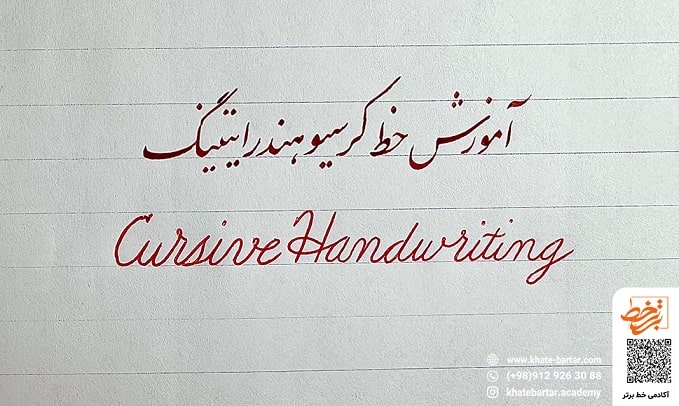 آموزش خط کرسیو هندرایتینگ
Cursive Handwriting
خط برتر
www.khate-bartar.com
(+98)912 926 30 88
khatebartar.academy
آکادمی خط برتر